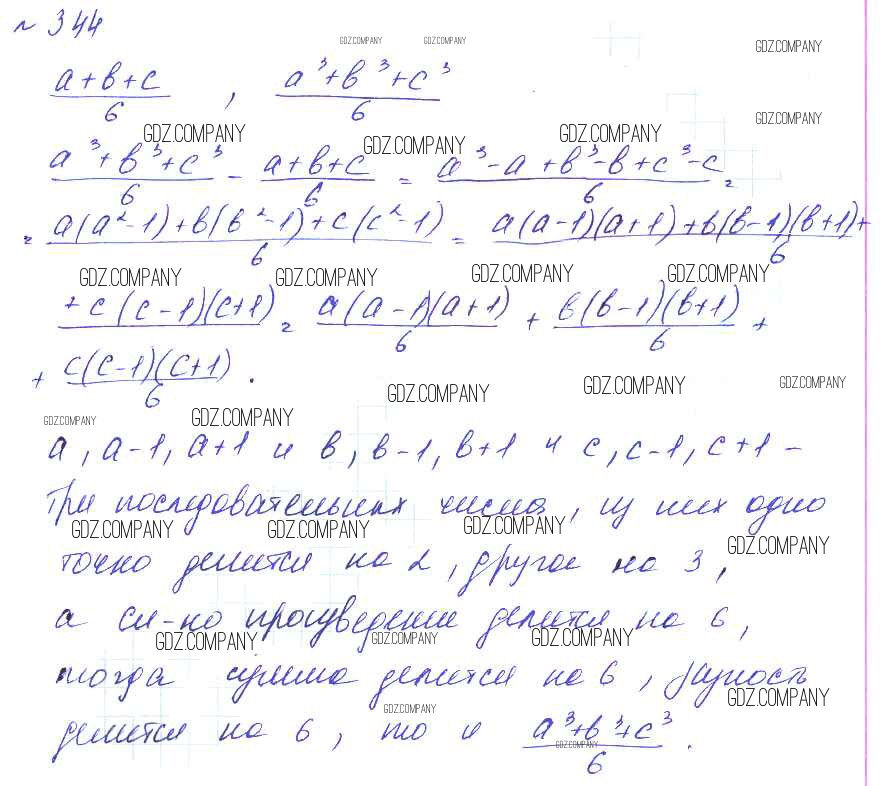 № 344
(a+b+c)/6 , (a³+b³+c³)/6
GDZ.COMPANY GDZ.COMPANY GDZ.COMPANY
GDZ.COMPANY GDZ.COMPANY
GDZ.COMPANY GDZ.COMPANY GDZ.COMPANY
(a³+b³+c³)/6 - (a+b+c)/6 = (a³-a+b³-b+c³-c)/6 =
= (a(a²-1)+b(b²-1)+c(c²-1))/6 = (a(a-1)(a+1)+b(b-1)(b+1)+)/6
GDZ.COMPANY GDZ.COMPANY GDZ.COMPANY GDZ.COMPANY
+c(c-1)(c+1) = a(a-1)(a+1)/6 + b(b-1)(b+1)/6 +
+ c(c-1)(c+1)/6 .
GDZ.COMPANY GDZ.COMPANY GDZ.COMPANY
GDZ.COMPANY GDZ.COMPANY
a, a-1, a+1 и b, b-1, b+1 и c, c-1, c+1 -
три последовательных числа, из них одно
GDZ.COMPANY GDZ.COMPANY GDZ.COMPANY GDZ.COMPANY
точно делится на 2, другое на 3,
а сл-но произведение делится на 6,
GDZ.COMPANY GDZ.COMPANY GDZ.COMPANY
тогда сумма делится на 6, разность
GDZ.COMPANY GDZ.COMPANY
делится на 6, то и (a³+b³+c³)/6 .
GDZ.COMPANY